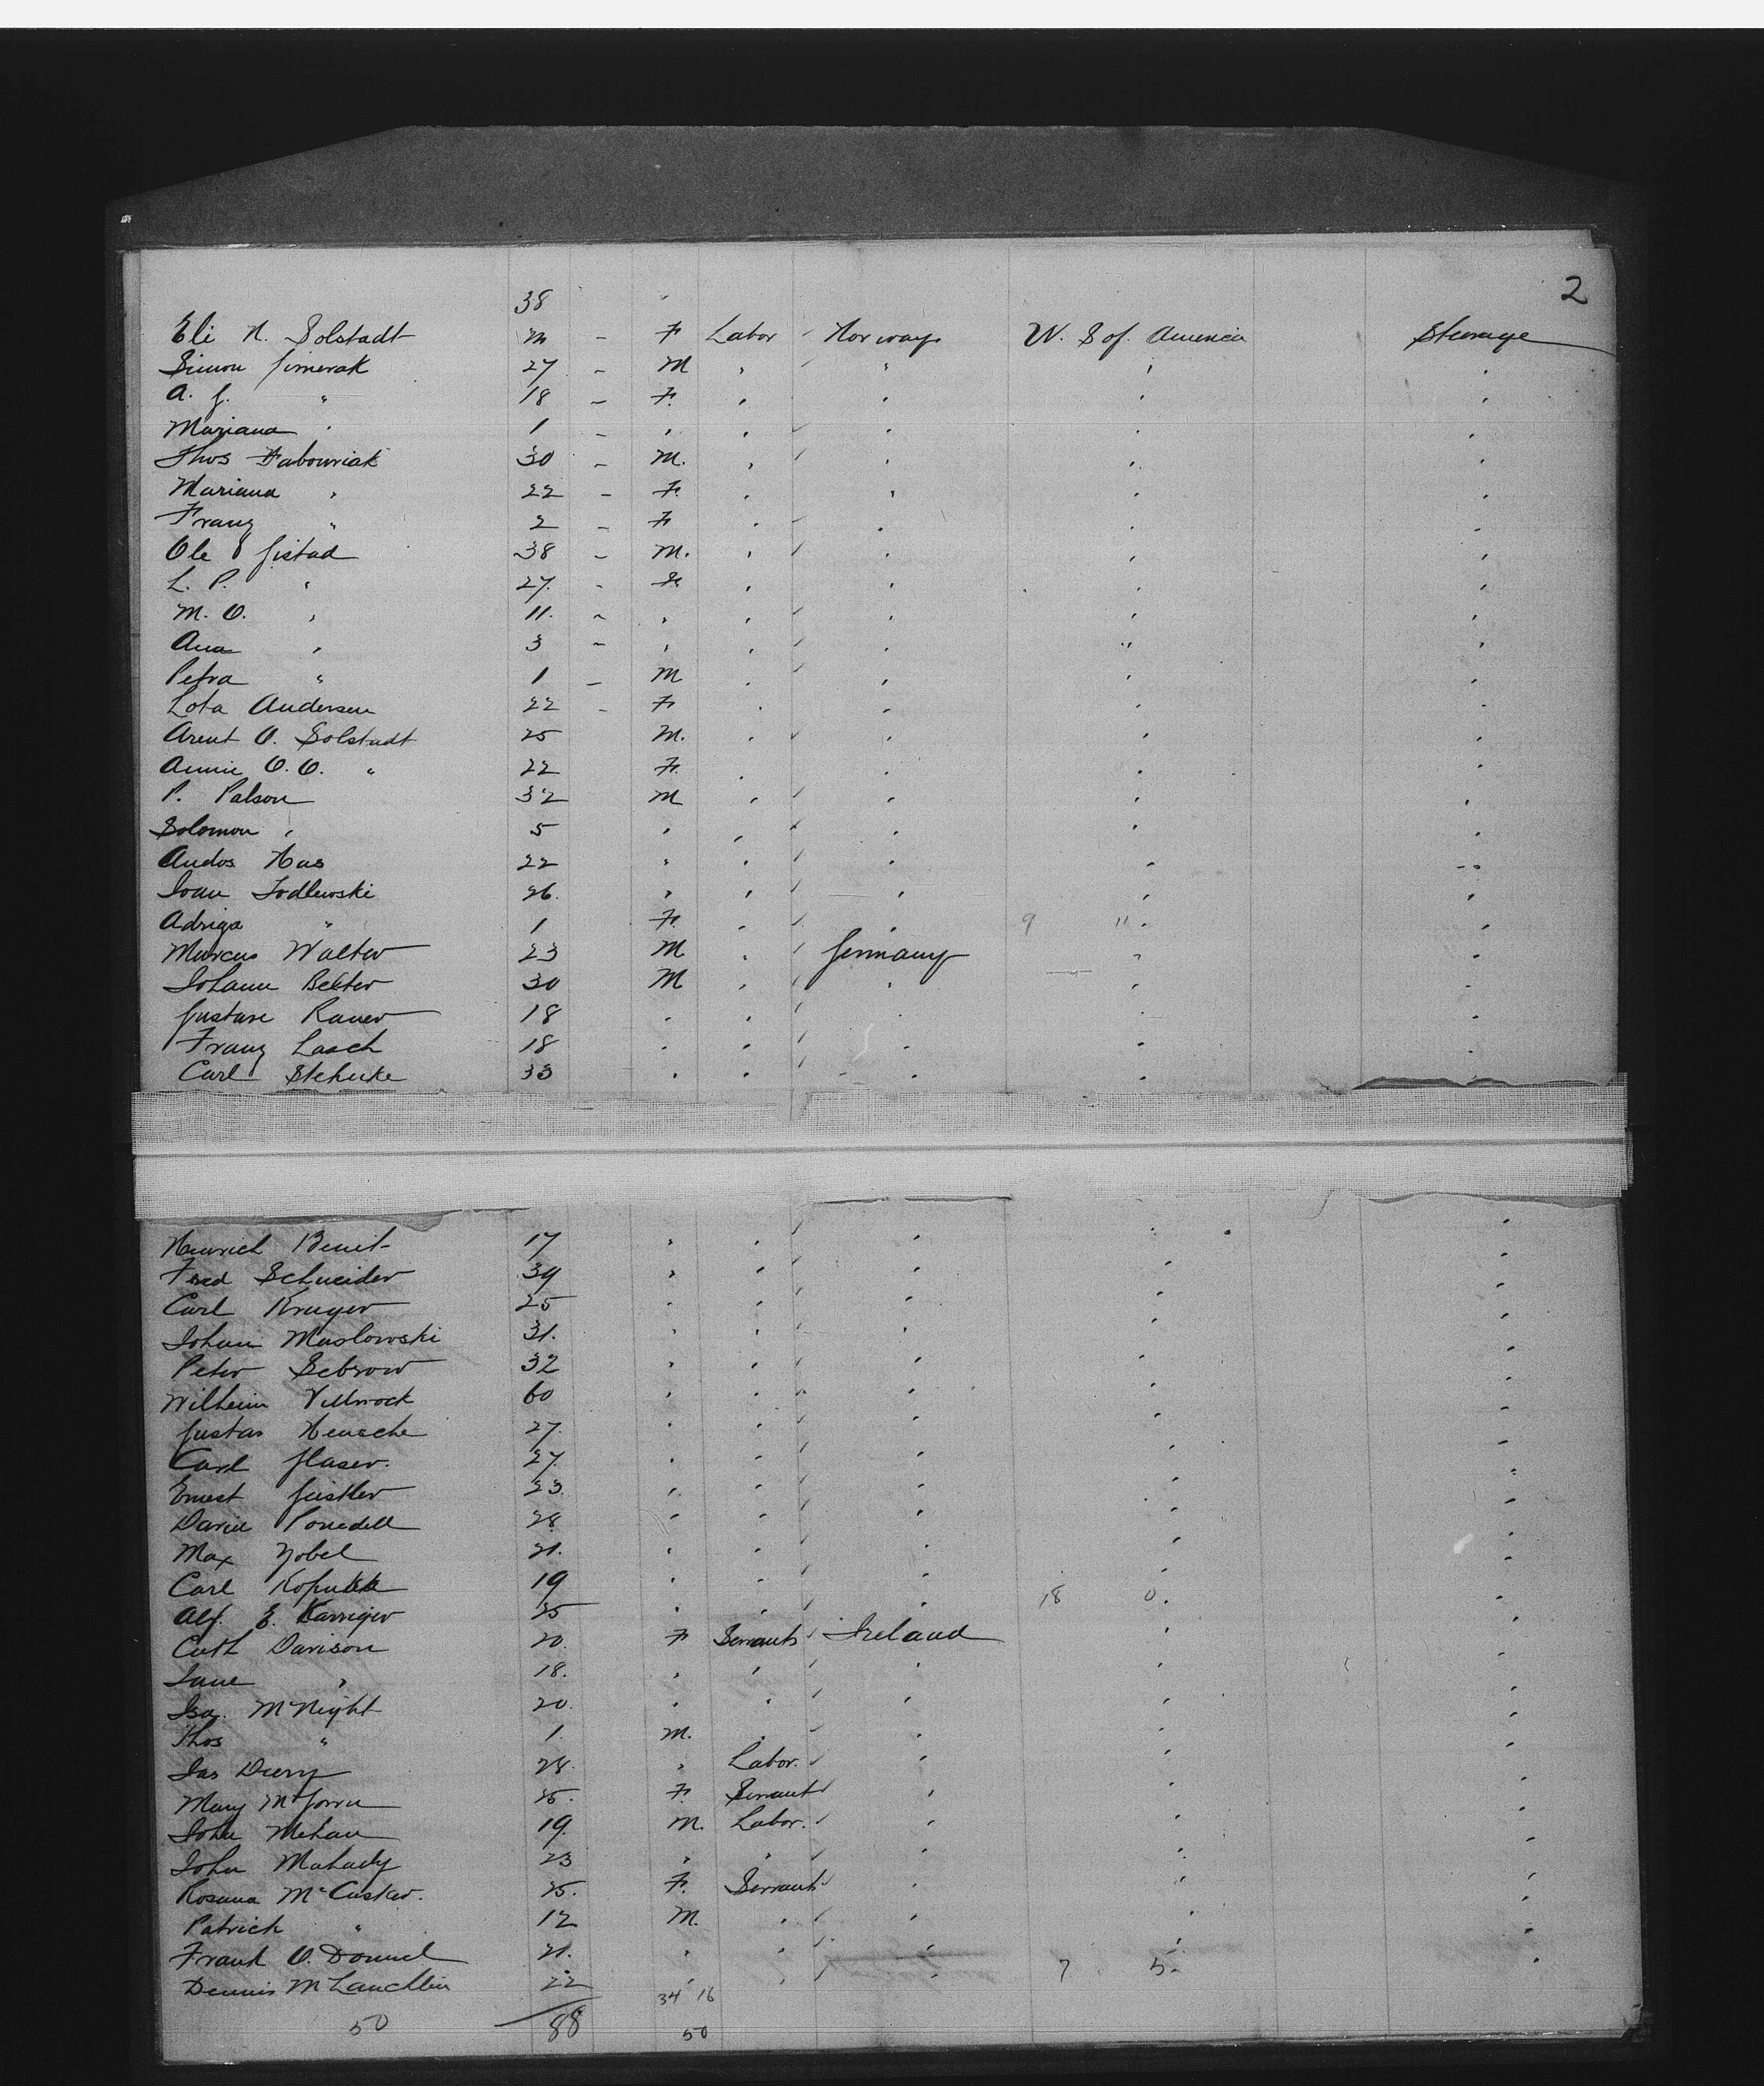 2
38 '
Eli N. Solstadt m - F Labor Norway U. S of. America Steerage
Simon Gimerak 27 - M " " " "
A. G. " 18 - F. " " " "
Mariana " 1 - " " " " "
Thos Fabouriak 30 - M. " " " "
Mariana " 22 - F. " " " "
Franz " 2 - F " " " "
Ole Gistad 38 - M. " " " "
L. P. " 27. - F. " " " "
M. O. " 11. - " " " " "
Ana " 3 - " " " " "
Petra " 1 - M " " " "
Lota Andersen 22 - F " " " "
Arent O. Solstadt 25 M. " " " "
Annie O. O. " 22 F. " " " "
P. Palson 32 M " " " "
Solomon " 5 " " " " "
Andos Has 22 " " " " "
Ioan Todlewski 26. " " " " "
Adriga " 1 F. " " 9 11 " "
Marcus Walter 23 M " Germany " "
Johann Bekter 30 M " " " "
Gustave Rauer 18 " " " " "
Franz Lasch 18 " " " " "
Carl Stehuke 33 " " " " "
Heinrich Benit 17 " " " " "
Fred Schneider 39 " " " " "
Carl Kruger 25 " " " " "
Johan Maslowski 31. " " " " "
Peter Sebrow 32 " " " " "
Wilheim Villwock 60 " " " " "
Gustav Hensche 27. " " " " "
Carl Glaser. 27. " " " " "
Ernest Gistler 23. " " " " "
28 " " " " "
Max Zobel 21. " " " " "
Carl 19 " " " " "
Alf. E. Karriger 25 " " " 18 0. "
Cath Davison 20. F Servants Ireland " "
Jane " 18. " " " " "
Isa. McNight 20. " " " " "
Thos " 1. M. " " " "
Jas Diery 28. " Labor. " " "
Mary 25. F. Servant " " "
John Mehan 19. M. Labor. " " "
John Mahady 23 " " " " "
Rosana McCusker. 25. F. Servant " " "
Patrick " 12 M. " " " "
Frank O. Donnel 21. " " " " "
Dennis McLauchlin 22 " " " 7 5. "
34 16
50 88 50